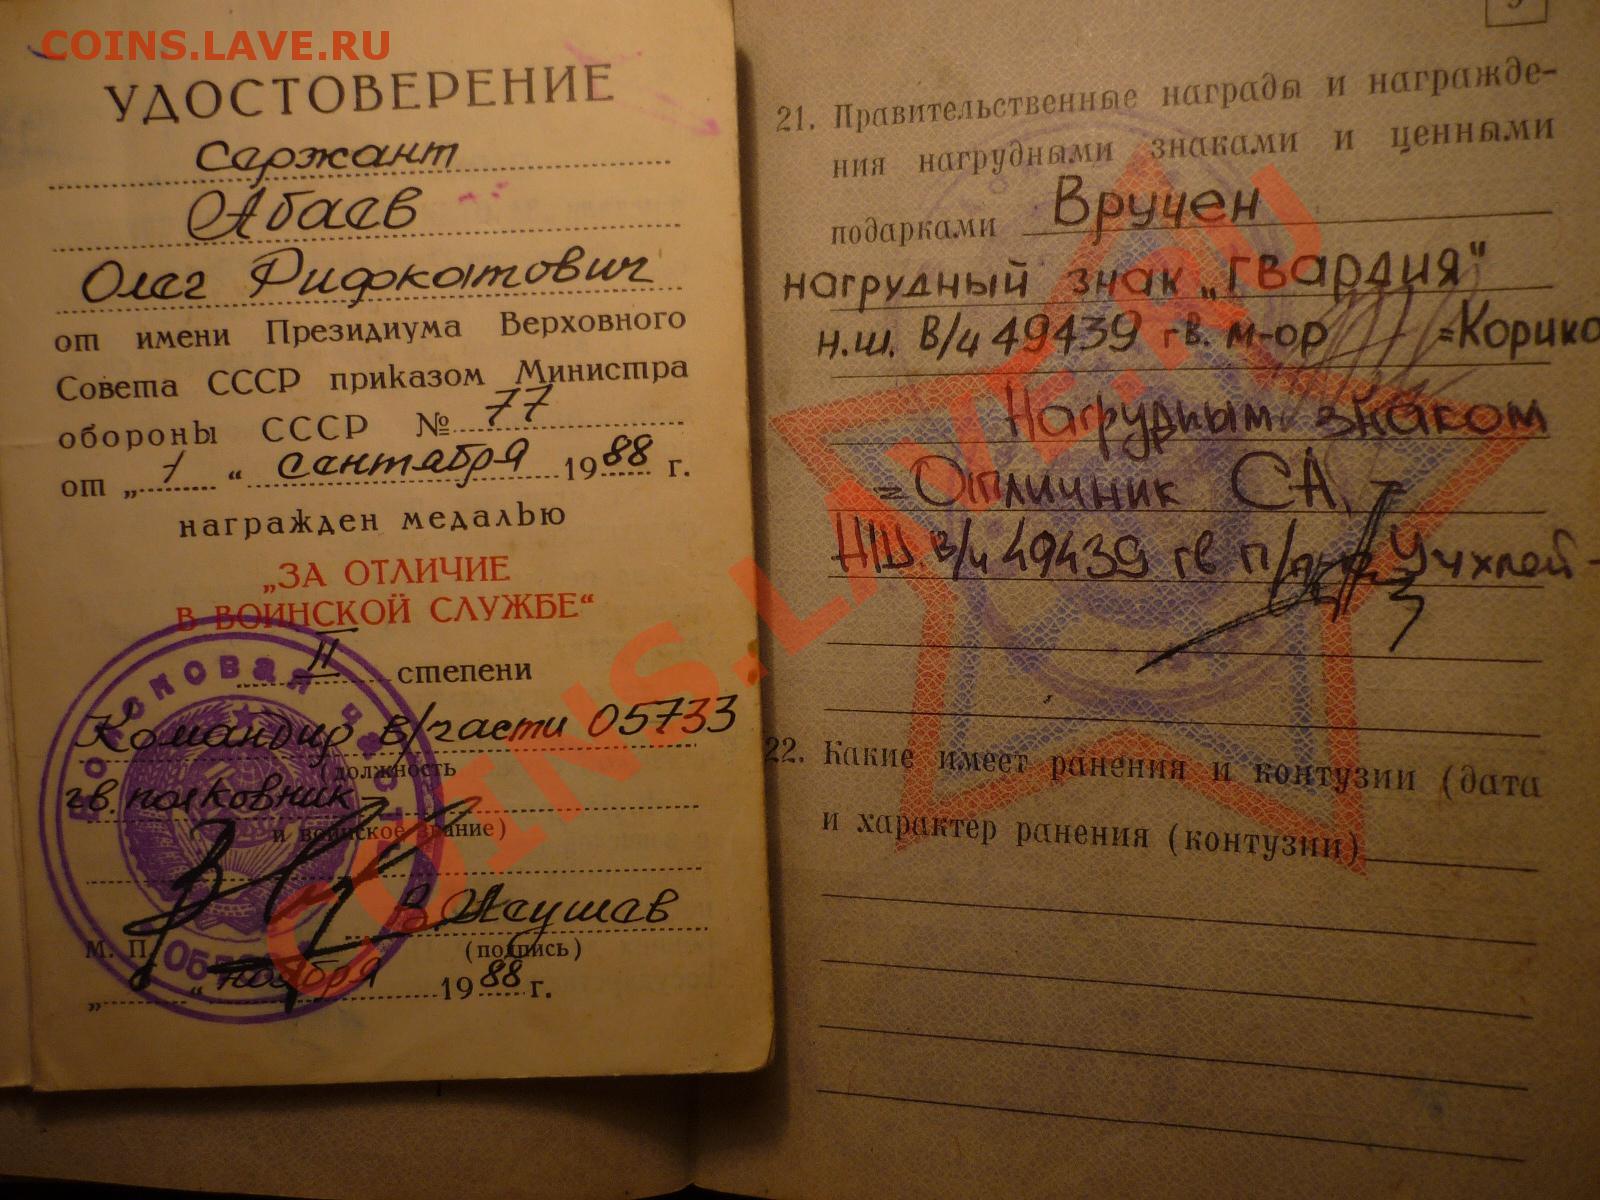 COINS.LAVE.RU
УДОСТОВЕРЕНИЕ
Сержант
Абаев
Олег Рифкатович
от имени Президиума Верховного
Совета СССР приказом Министра
обороны СССР № 77
от „ 1 “ сентября 1988 г.
награжден медалью
„ЗА ОТЛИЧИЕ
В ВОИНСКОЙ СЛУЖБЕ“
II степени
Командир в/части 05733
(должность
гв. полковник
и воинское звание)
(подпись)
М. П.
„ “ ноября 1988 г.
войсковая часть
21. Правительственные награды и награжде-
ния нагрудными знаками и ценными
подарками Вручен
нагрудный знак „ГВАРДИЯ"
н.ш. В/ч 49439 гв. м-ор =Корико
Нагрудным знаком
=Отличник СА
НШ. В/ч 49439 гв п/п-к
22. Какие имеет ранения и контузии (дата
и характер ранения (контузии)
COINS.LAVE.RU